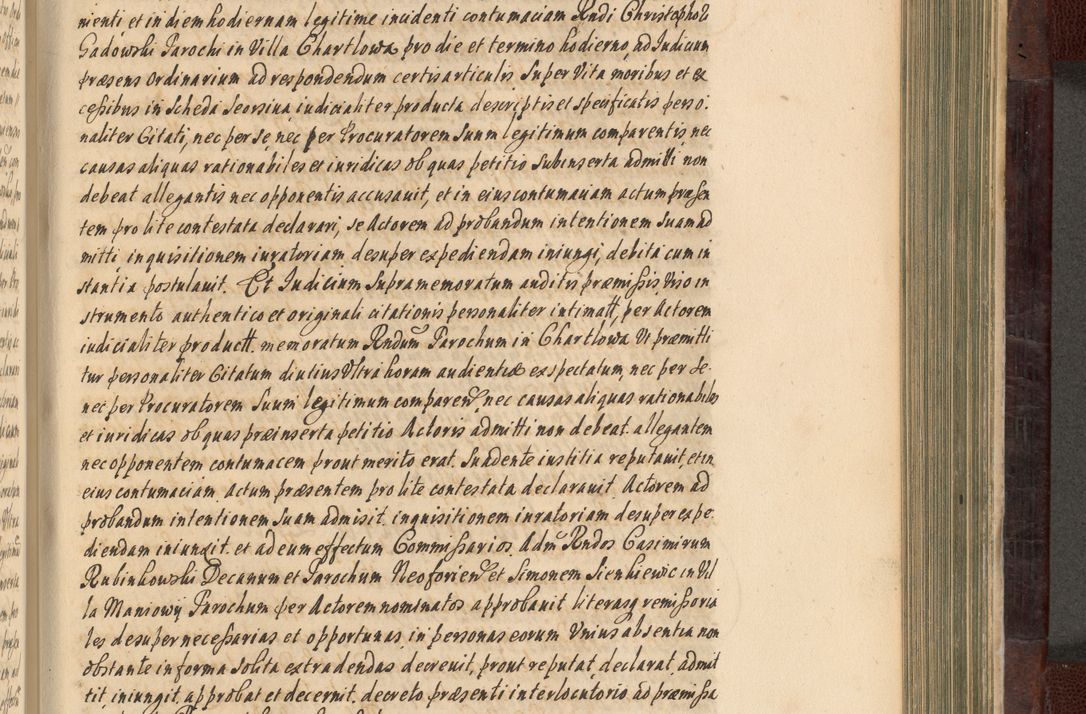 nienti et in diem hodiernam legitime incidenti contumaciam Rndi Christophori
Sadowski Parochi in Villa Chartłowa pro die et termino hodierno, ad Iudicium
præsens Ordinarium ad respondendum certis articulis super Vita moribus et ex
ceßibus in Scheda Seorsiua iudicialiter producta descriptis et specificatis perso:
naliter Citati, nec per se, nec per Procuratorem Suum legitimum comparentis nec
causas aliquas rationabiles et iuridicas ob quas petitio Subinserta admitti non
debeat allegantis nec opponentis accusauit, et in eius contumaciam actum præsen
tem pro lite contestata declarari, se Actorem ad probandum intentionem Suam ad
mitti, inquisitionem iuratoriam desuper expediendam iniungi, debita cum in
stantia postulauit. Et Iudicium Supra memoratum auditis præmißis, Viso in
strumento authentico et originali citationis personaliter intimatt, per Actorem
iudicialiter productt. memoratum Rndum Parochum in Chartłowa Vt præmitti
tur personaliter Citatum diutius Vltra horam audientiæ exspectatum, nec per Se.
nec per Procuratorem Suum legitimum comparen, nec causas aliquas rationabiles
et iuridicas ob quas præinserta petitio Actoris admitti non debeat. allegantem
nec opponentem contumacem prout merito erat. Suadente iustitia reputauit, et in
eius contumaciam. actum præsentem pro lite contestata declarauit. Actorem ad
probandum intentionem Suam admisit. inquisitionem iuratoriam desuper expe:
diendam iniunxit. et ad eum effectum Commißarios. Adm Rndos Casimirum
Rubinkowski Decanum et Parochum Neoforien et Simonem Sienkiewic in Vil
la Maniowy Parochum per Actorem nominatos approbauit literasq remißoria
les desuper neceßarias et opportunas in personas eorum Vnius absentia non
obstante in forma Solita extradendas decreuit, prout reputat, declarat, admit
tit, iniungit, approbat et decernit. decreto præsenti interlocutorio ad præmißa